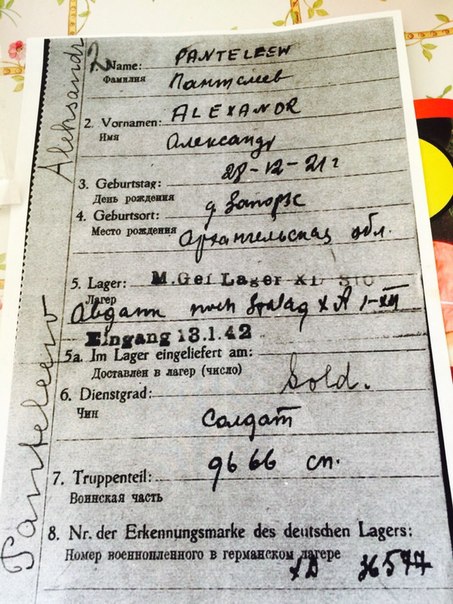 Aleksandr
Panteleew
2
1. Name: PANTELEEW
Фамилия Пантелеев
2. Vornamen: ALEXANDR
Имя Александр
3. Geburtstag: 28-12-21 г
День рождения
4. Geburtsort: д Запорье
Место рождения Архангельская обл.
5. Lager: M.Gef Lager
Лагер
Abgang nach Stalag X A
Eingang 13.1.42
5a. Im Lager eingeliefert am:
Доставлен в лагер (число)
6. Dienstgrad: Sold.
Чин Солдат
7. Truppenteil: 9666 сп.
Воинская часть
8. Nr. der Erkennungsmarke des deutschen Lagers:
Номер военнопленного в германском лагере
XD 36577